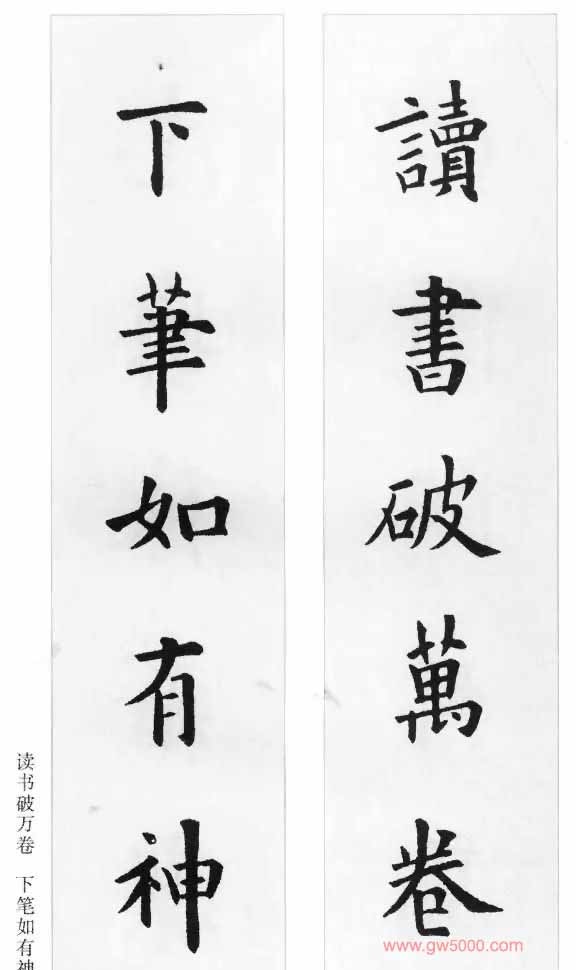 讀書破萬卷
下筆如有神
读书破万卷 下笔如有神
www.gw5000.com